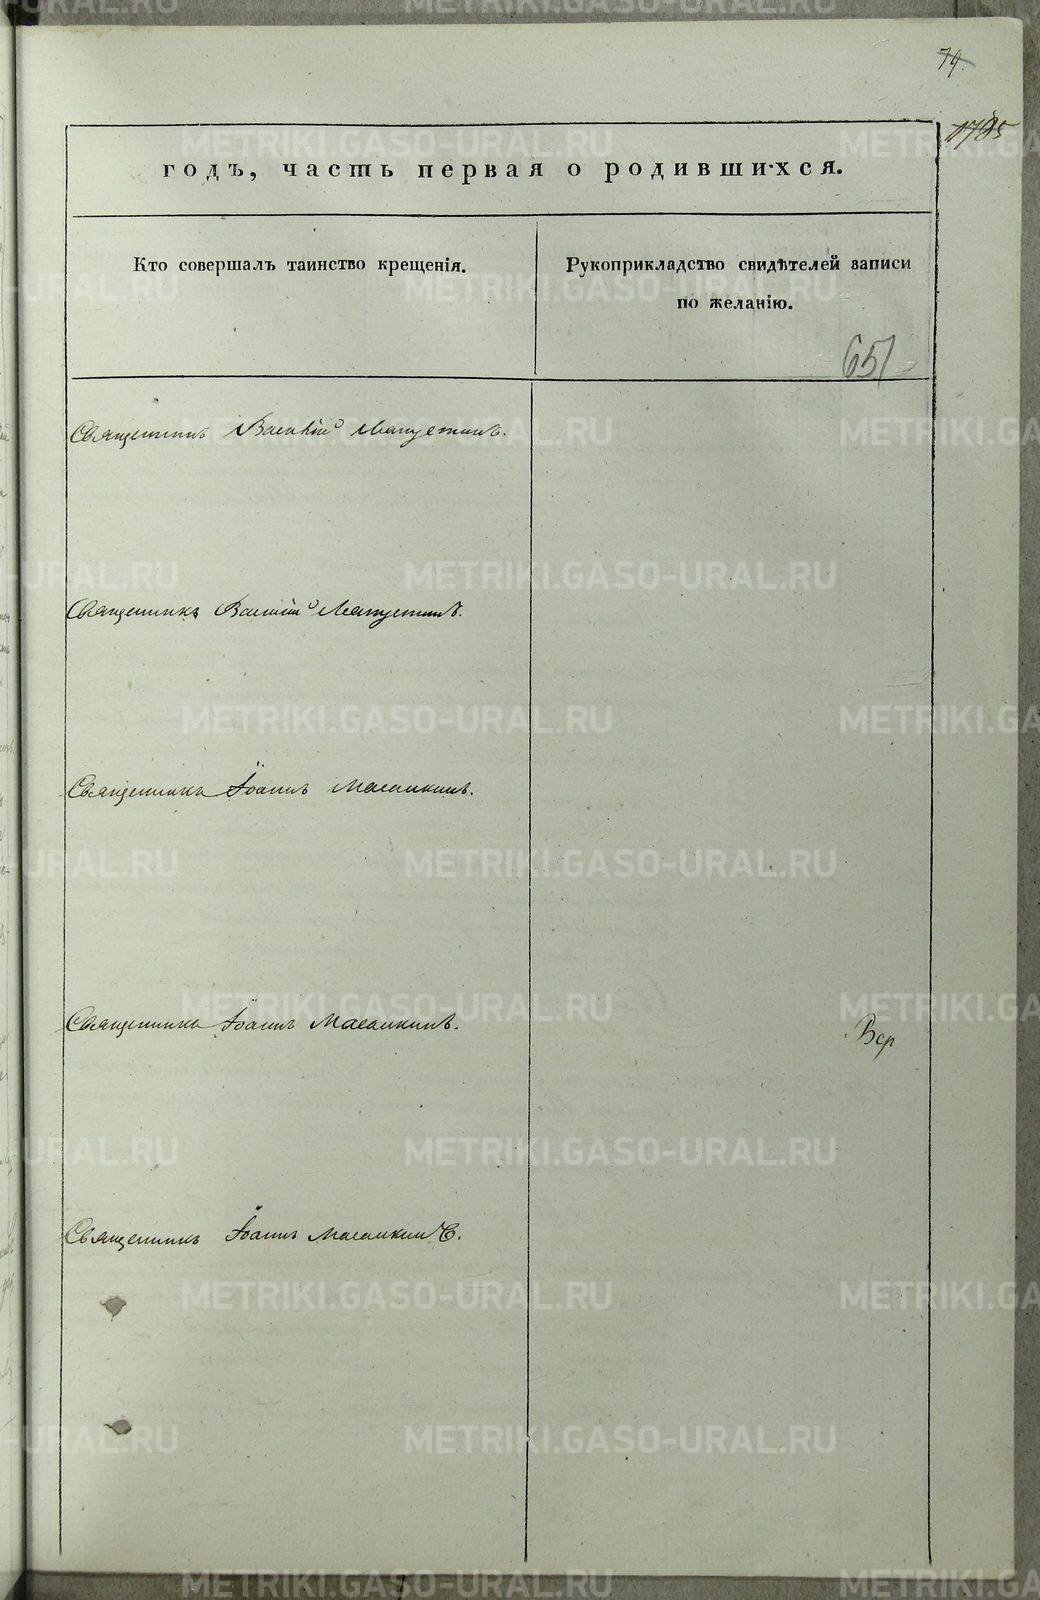 79.
1785
годъ, часть первая о родившихся.
Кто совершалъ таинство крещенія.
Рукоприкладство свидѣтелей записи
по желанію.
651
Священникъ Василій
Священникъ Василій
Священникъ Іоаннъ Масалкинъ.
Священникъ Іоаннъ Масалкинъ.
Вер
Священникъ Іоаннъ Масалкинъ.
METRIKI.GASO-URAL.RU